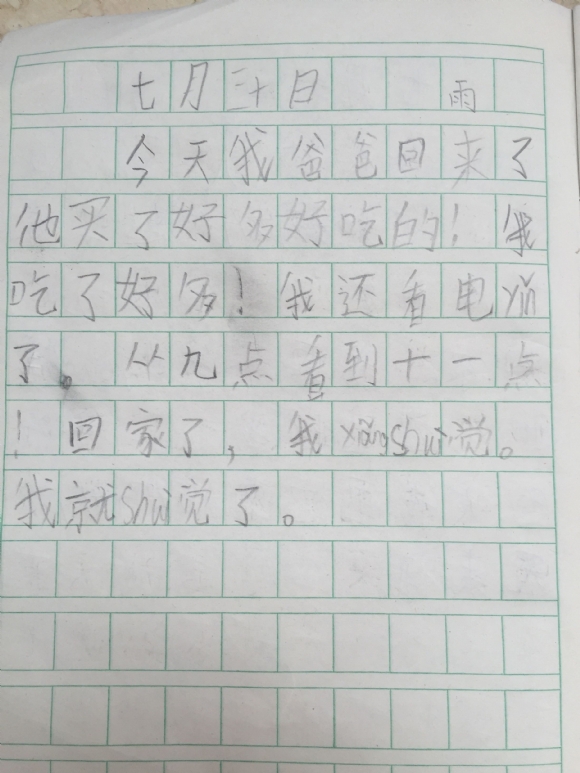 七月三十日 雨
今天我爸爸回来了
他买了好多好吃的！我
吃了好多！我还看电yǐn
了。从九点看到十一点
！回家了，我xiǎngshuì觉。
我就shuì觉了。